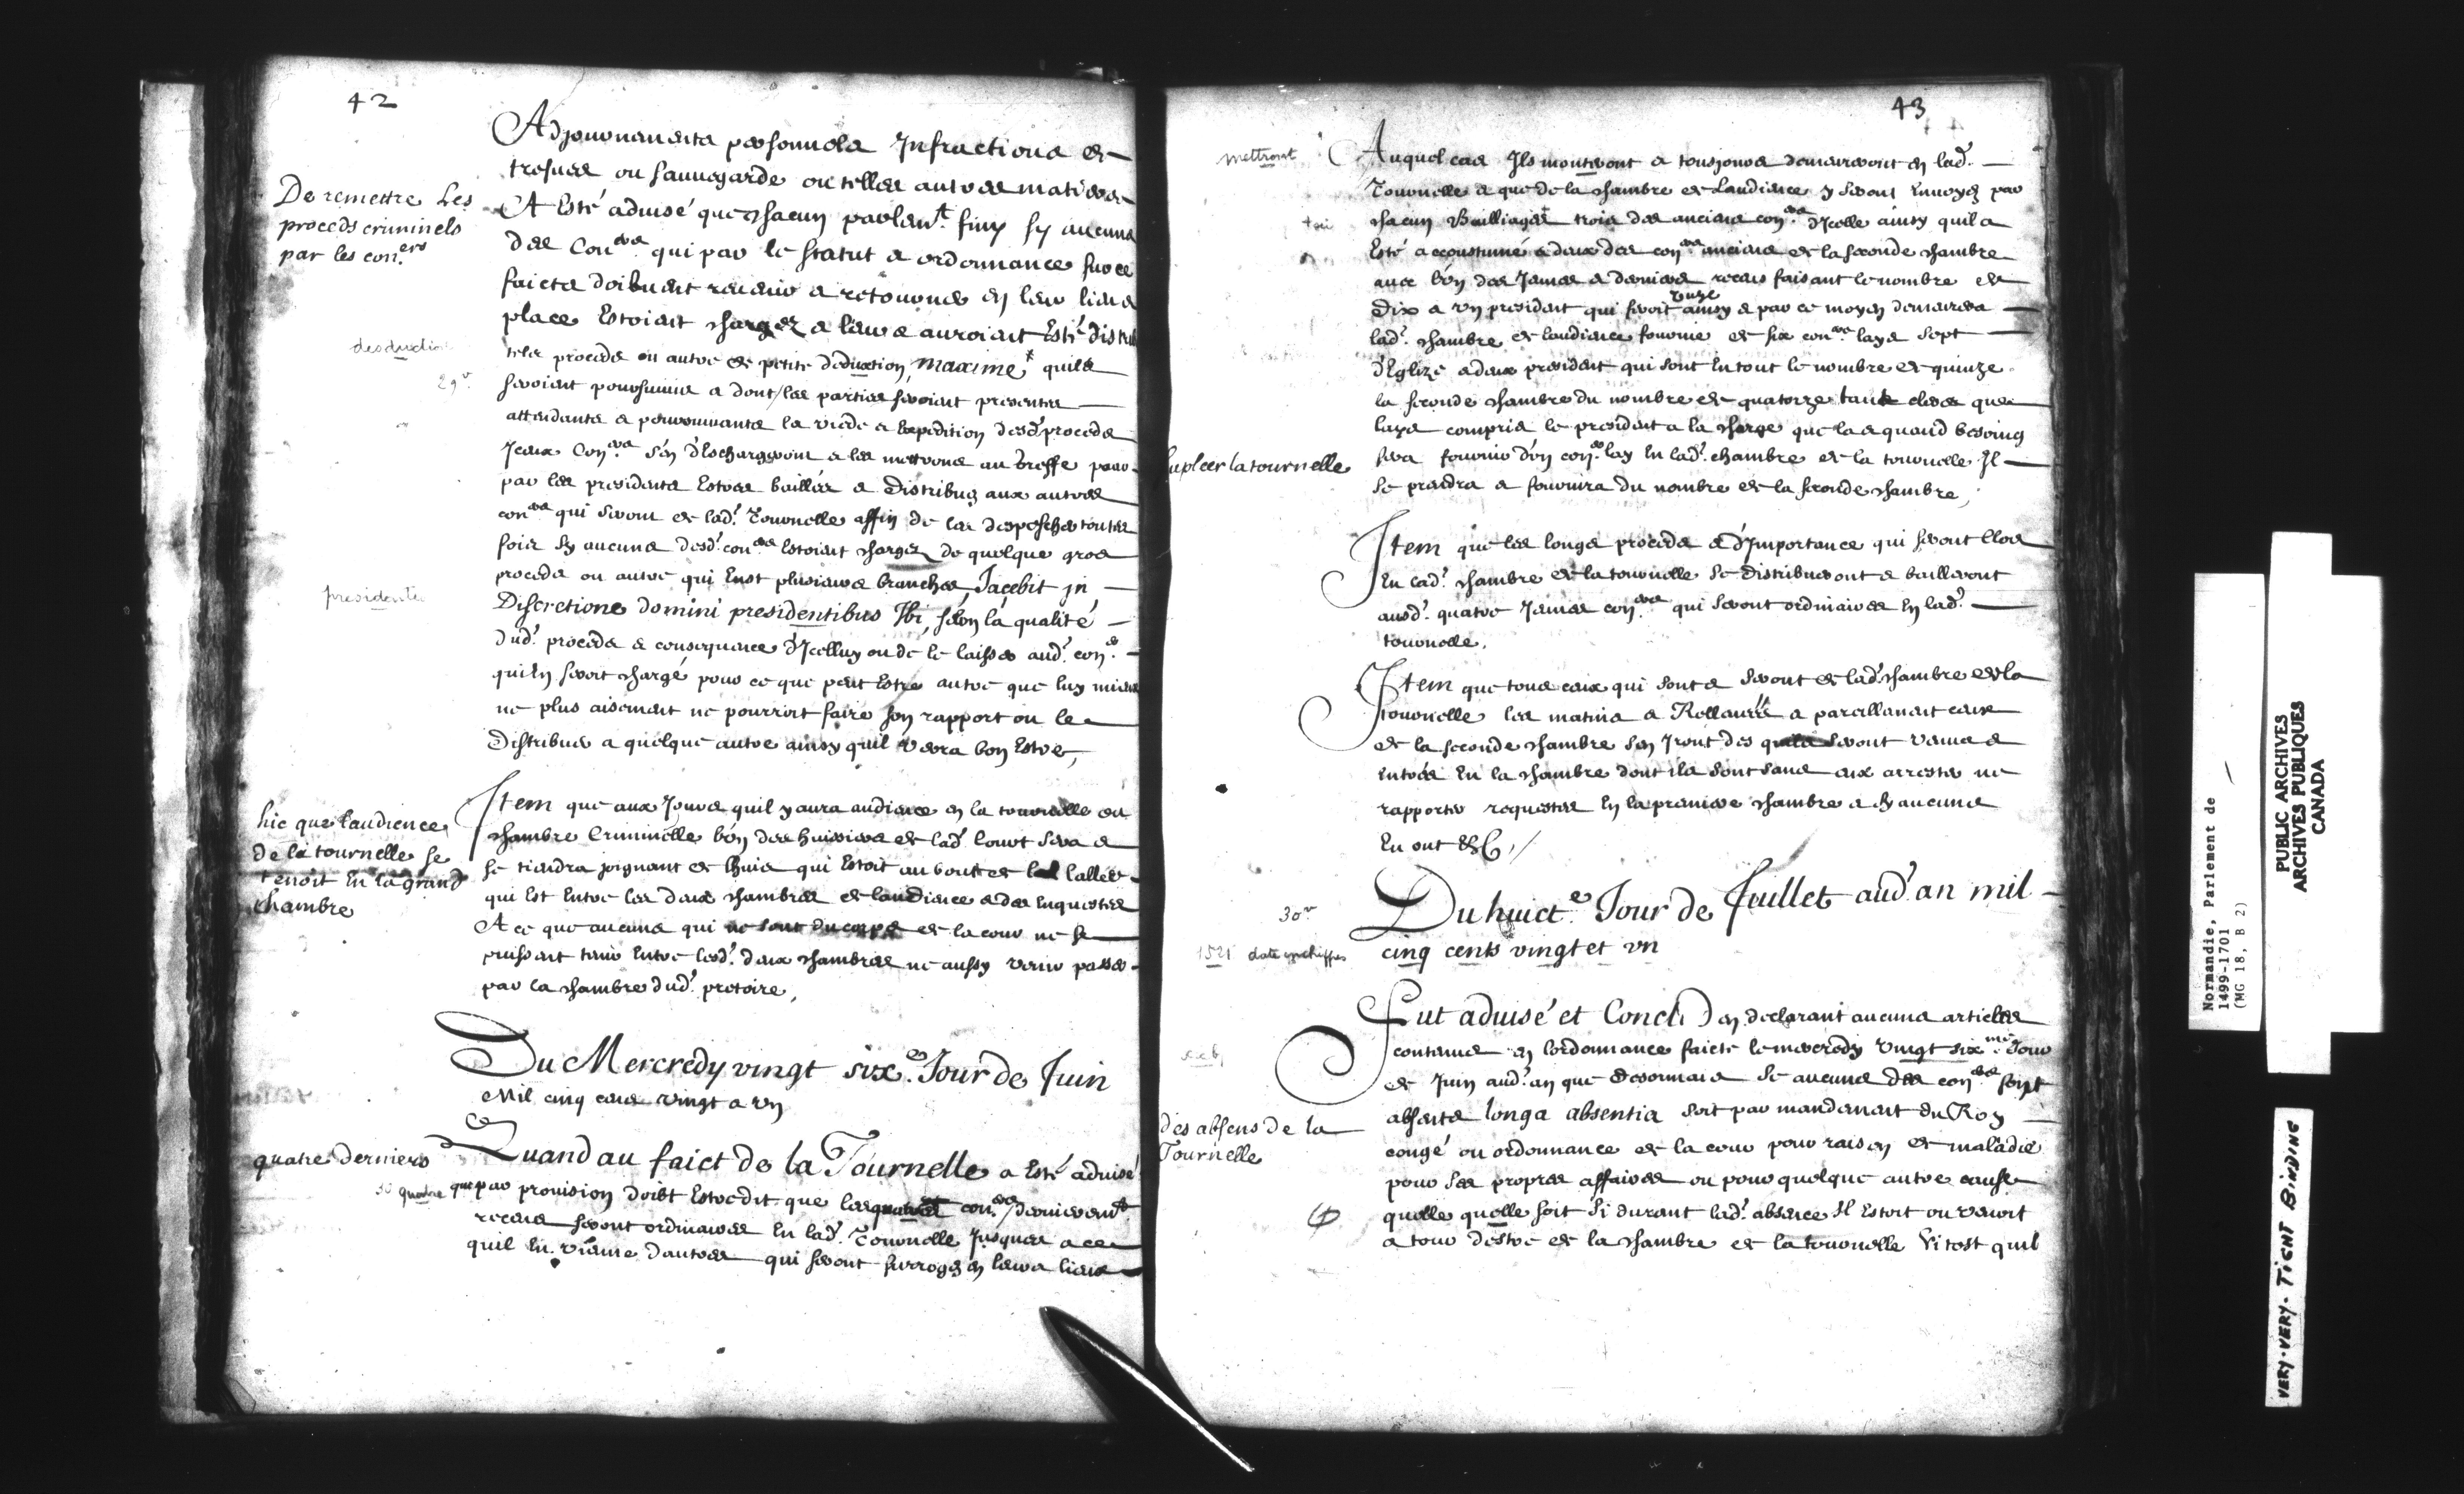 42
De remettre Les
proceds criminels
par les con.ers
Adjournements personnels Infractions de
tresues ou sauuegarde ou telles autres matieres
A Esté aduisé que chacun parlem.t finy sy aucuns
des Con.ers qui par le statut et ordonnance sur ce
faicte doibuent reuenir et retourner en leur lieu et
place Estoient chargez et leurs auroient Esté distri
tels proceds ou autre de petite deduction, maxime quils
seroient poursuiuis et dont les parties seroient presentes
attendants et poursuiuants la vuide et Expedition desd. proceds
Iceux Con.ers s'en deschargeront et les mettrons au Greffe pour
par les presidents Estres baillés et distribuez aux autres
con.ers qui seront de lad. Tournelle affin de les despescher toutes
fois sy aucuns desd. con.ers Estoient chargez de quelque gros
proceds ou autre qui Eust plusieurs branches, Jacebit jn
Discretione domini presidentibus Ibi, selon la qualité
dud. proceds et consequence d'Icelluy ou de le laisser aud. con.er
qui En seroit chargé pour ce que peut Estre autre que luy mieux
ne plus aisement ne pourroit faire son rapport ou le
distribuer a quelque autre ainsy quil verra bon Estre,
desduction
29 v.
presidente
hic que l'audience
de la tournelle se
tenoit En la grand
chambre
Item que aux Jours quil y aura audience en la tournelle ou
chambre Criminelle l'un des huissiers de lad. Court sera et
se tiendra joignant de lhuis qui Estoit au bout de lallée
qui Est Entre les deux chambres de laudience et des Enquestes
A ce que aucuns qui ne sont du corps de la cour ne se
puissent tenir Entre lesd. deux chambres ne aussy venir passer
par la chambre dud. pretoire,
Du Mercredy vingt sixe. Jour de Juin
Mil cinq cens vingt et vn
quatre derniers
Quand au faict de la Tournelle a Esté aduisé
30 quatre
que par prouision doibt Estre dit que les quatre con.ers dernierem.t
receus seront ordinaires En lad. Tournelle Jusques a ce
quil En vienne d'autres qui seront surrogez en leurs lieux
43
mettront
Auquel cas Ils monteront et tousjours demeureront en lad.
Tournelle et que de la chambre de Laudience y seront Enuoyez par
chacun Bailliages trois des anciens con.ers d'Icelle ainsy quil a
Esté accoustumé et deux des con.ers anciens de la seconde chambre
auec l'un des Jeunes et derniers receus faisant le nombre de
Dix et vn president qui seroit Vnze ainsy et par ce moyen demeurera
lad. chambre de laudience fournie de six con.ers lays sept
d'Eglize et deux president qui sont En tout le nombre de quinze
la seconde chambre du nombre de quatorze tant clercs que
lays compris le president a la charge que la et quand besoing
sera fournir d'un con.er lay En lad. chambre de la tournelle Il
se prendra et fournira du nombre de la seconde chambre,
supleer la tournelle
Item que les longs proceds et d'Importance qui seront Clos
En lad. chambre de la tournelle se distribueront et bailleront
ausd. quatre Jeunes con.ers qui seront ordinaires En lad.
tournelle.
Item que tous ceux qui sont et seront de lad. chambre de la
tournelle les matins et Relleuées et pareillement ceux
de la seconde chambre s'en Iront des quils seront venus et
Entrés En la chambre dont ils sont sans eux arrester ne
rapporter requestes En la premiere chambre et sy aucuns
En ont &c
30 v.
1521 date en chiffres
Du huicte. Jour de Juillet aud. an mil
cinq cents vingt et vn
Fut aduisé et Conclu en declarant aucuns articles
contenus en l'ordonnance faicte le mercredy vingt sixme. Jour
de Juin aud. an que desormais se aucuns des con.ers soient
absents longa absentia soit par mandement du Roy
congé ou ordonnance de la cour pour raison de maladie
pour ses propres affaires ou pour quelque autre cause
quelle quelle soit si durant lad. absence Il Estoit ou venoit
a tour d'estre de la chambre de la tournelle si tost quil
des absens de la
Tournelle
Normandie, Parlement de
1499-1701
(MG 18, B 2)
PUBLIC ARCHIVES
ARCHIVES PUBLIQUES
CANADA
VERY-VERY-TIGHT BINDING